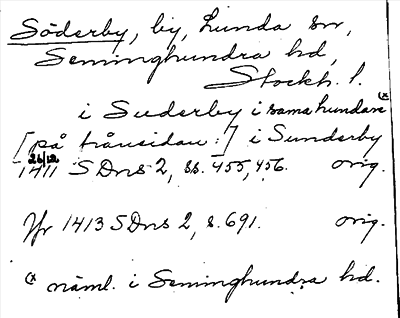 Söderby, by, Lunda sn,
Seminghundra hd,
Stockh. l.
i Suderby i sama hundare (x
[på frånsidan:] i Sunderby
26/12
1411 SDns 2, ss. 455, 456. orig.
Jfr 1413 SDns 2, s. 691. orig.
(x näml. i Seminghundra hd.